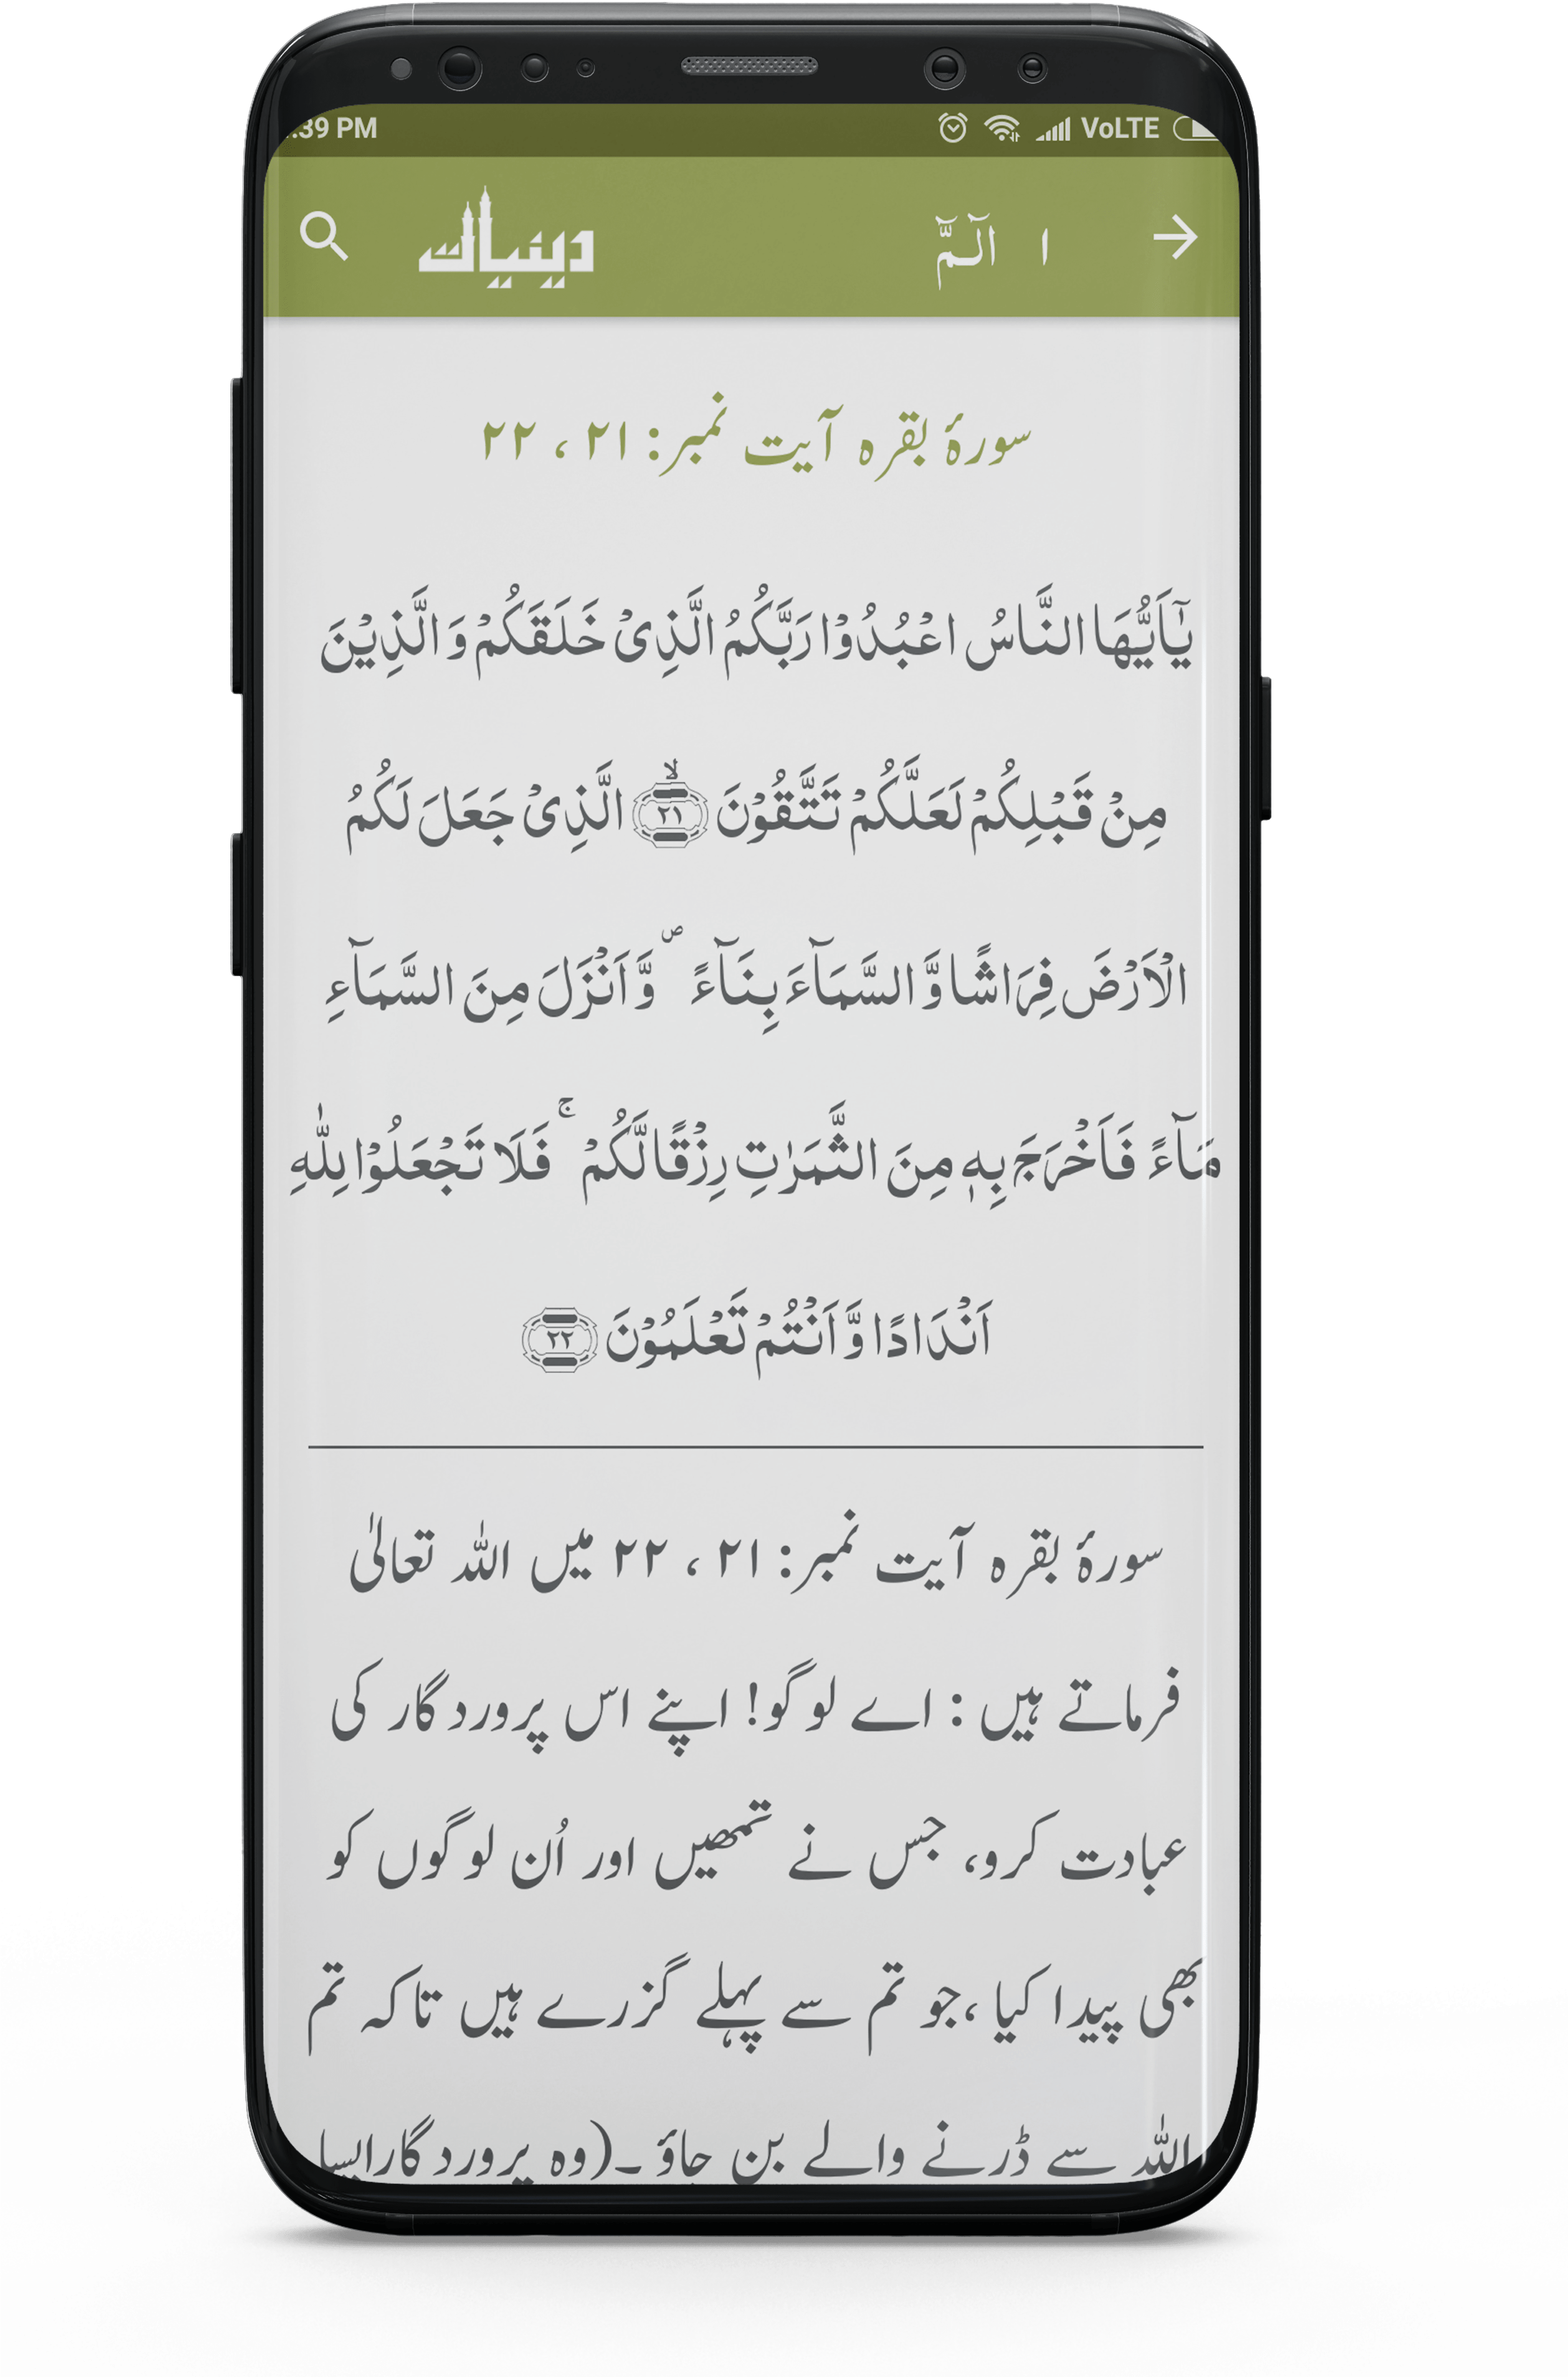 :39 PM VoLTE
دینیات ١ الٓمّٓ
سورۂ بقرہ آیت نمبر: ۲۱ ، ۲۲
يٰۤاَيُّهَا النَّاسُ اعْبُدُوْا رَبَّكُمُ الَّذِىْ خَلَقَكُمْ وَ الَّذِيْنَ
مِنْ قَبْلِكُمْ لَعَلَّكُمْ تَتَّقُوْنَ ۙ﴿۲۱﴾ الَّذِىْ جَعَلَ لَكُمُ
الْاَرْضَ فِرَاشًا وَّ السَّمَآءَ بِنَآءً ۪ وَّ اَنْزَلَ مِنَ السَّمَآءِ
مَآءً فَاَخْرَجَ بِهٖ مِنَ الثَّمَرٰتِ رِزْقًا لَّكُمْ ۚ فَلَا تَجْعَلُوْا لِلّٰهِ
اَنْدَادًا وَّ اَنْتُمْ تَعْلَمُوْنَ ﴿۲۲﴾
سورۂ بقرہ آیت نمبر: ۲۱ ، ۲۲ میں اللہ تعالیٰ
فرماتے ہیں : اے لوگو! اپنے اس پروردگار کی
عبادت کرو، جس نے تمھیں اور اُن لوگوں کو
بھی پیدا کیا ،جو تم سے پہلے گزرے ہیں تاکہ تم
اللہ سے ڈرنے والے بن جاؤ ۔(وہ پروردگارایسا